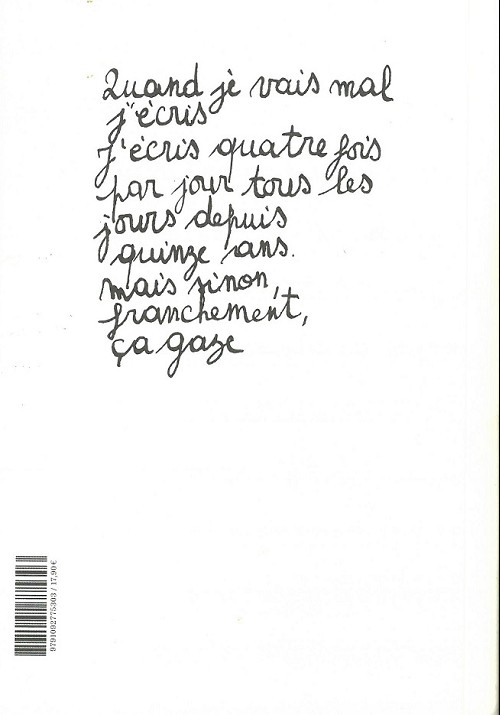 Quand je vais mal
j'écris
j'écris quatre fois
par jour tous les
jours depuis
quinze ans.
mais sinon,
franchement,
ça gaze
9791092775303 / 17,90 €